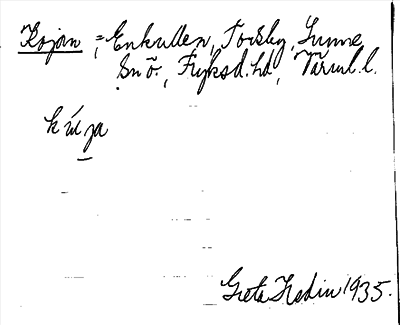 Kojan = Enkullen, Torsby, Sunne
sn ö., Fryksd. hd, Värml. l.
kúja
Greta Hedin 1935.